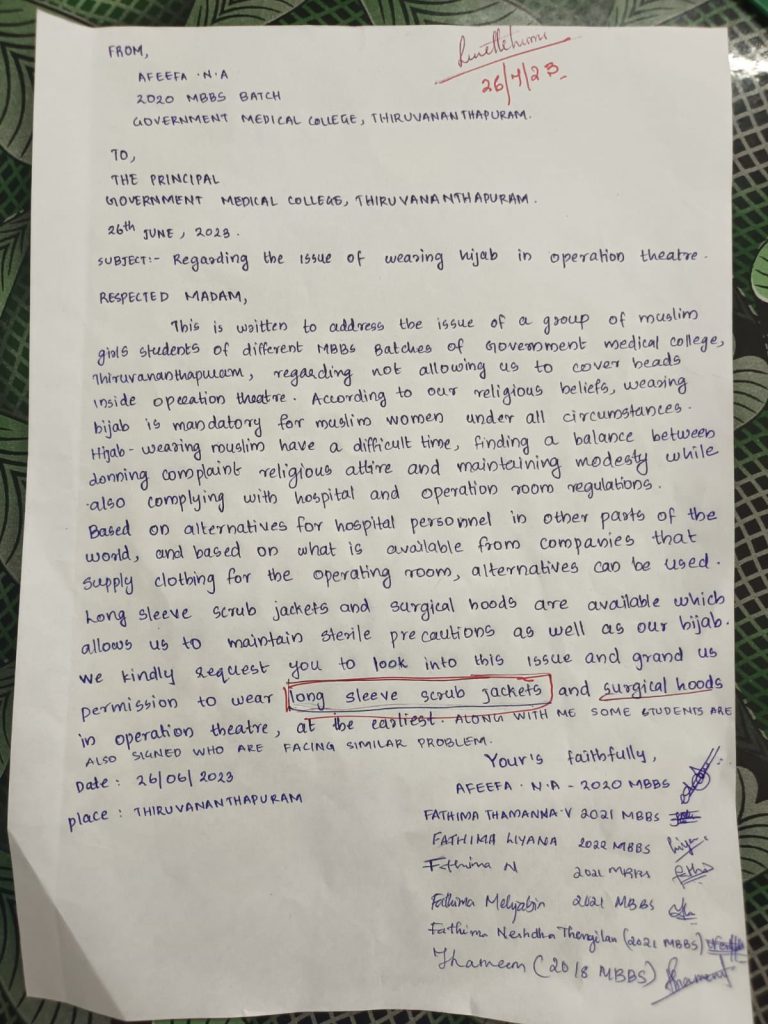 FROM,
AFEEFA . N . A
2020 MBBS BATCH
GOVERNMENT MEDICAL COLLEGE, THIRUVANANTHAPURAM.
26/4/23
TO,
THE PRINCIPAL
GOVERNMENT MEDICAL COLLEGE, THIRUVANANTHAPURAM.
26th JUNE, 2023.
SUBJECT:- Regarding the issue of wearing hijab in operation theatre.
RESPECTED MADAM,
This is written to address the issue of a group of muslim
girls students of different MBBS Batches of Government medical college,
Thiruvananthapuram, regarding not allowing us to cover heads
inside operation theatre. According to our religious beliefs, wearing
hijab is mandatory for muslim women under all circumstances.
Hijab-wearing muslim have a difficult time, finding a balance between
donning complaint religious attire and maintaining modesty while
also complying with hospital and operation room regulations.
Based on alternatives for hospital personnel in other parts of the
world, and based on what is available from companies that
supply clothing for the operating room, alternatives can be used.
Long sleeve scrub jackets and surgical hoods are available which
allows us to maintain sterile precautions as well as our hijab.
We kindly request you to look into this issue and grand us
permission to wear long sleeve scrub jackets and surgical hoods
in operation theatre, at the earliest. ALONG WITH ME SOME STUDENTS ARE
ALSO SIGNED WHO ARE FACING SIMILAR PROBLEM.
Your's faithfully,
Date : 26/06/2023
AFEEFA . N . A - 2020 MBBS
place : THIRUVANANTHAPURAM
FATHIMA THAMANNA.V 2021 MBBS
FATHIMA LIYANA 2022 MBBS
Fathima N 2021 MBBS
Fathima 2021 MBBS
Fathima (2021 MBBS)
Thameem (2018 MBBS)